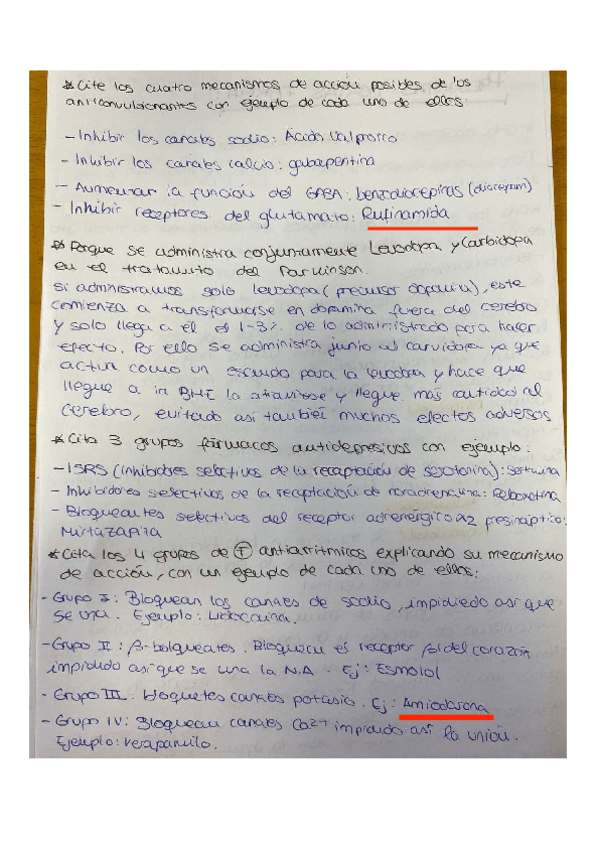 * Cite los cuatro mecanismos de acción posibles de los
anticonvulsionantes con ejemplo de cada uno de ellos:
- Inhibir los canales sodio: Ácido Valproico
- Inhibir los canales calcio: gabapentina
- Aumentar la función del GABA: benzodiacepinas (diacepam)
- Inhibir receptores del glutamato: Rufinamida
* Porque se administra conjuntamente Levodopa y Carbidopa
en el tratamiento del Parkinson.
Si administramos solo levodopa (precursor dopamina), este
comienza a transformarse en dopamina fuera del cerebro
y solo llega a él el 1-3% de lo administrado para hacer
efecto. Por ello se administra junto al carvidopa ya que
actua como un escudo para la levodopa y hace que
llegue a la BHE la atraviese y llegue mas cantidad al
cerebro, evitado así también muchos efectos adversos
* Cita 3 grupos fármacos antidepresivos con ejemplo:
- ISRS (inhibidores selectivos de la recaptación de serotonina): Sertralina
- Inhibidores selectivos de la recaptación de noradrenalina: Reboxetina
- Bloqueantes selectivos del receptor adrenérgico α2 presináptico:
Mirtazapina
* Cita los 4 grupos de T antiarritmicos explicando su mecanismo
de acción, con un ejemplo de cada uno de ellos:
- Grupo I: Bloquean los canales de sodio, impidiedo así que
se una. Ejemplo: Lidocaina.
- Grupo II: β-bloqueates. Bloquean el receptor β1 del corazón
impidiedo así que se una la N.A. Ej: Esmolol
- Grupo III. bloquetes canales potasio. Ej: Amiodarona
- Grupo IV: Bloquean canales Ca2+ impidiedo así la unión.
Ejemplo: verapamilo.